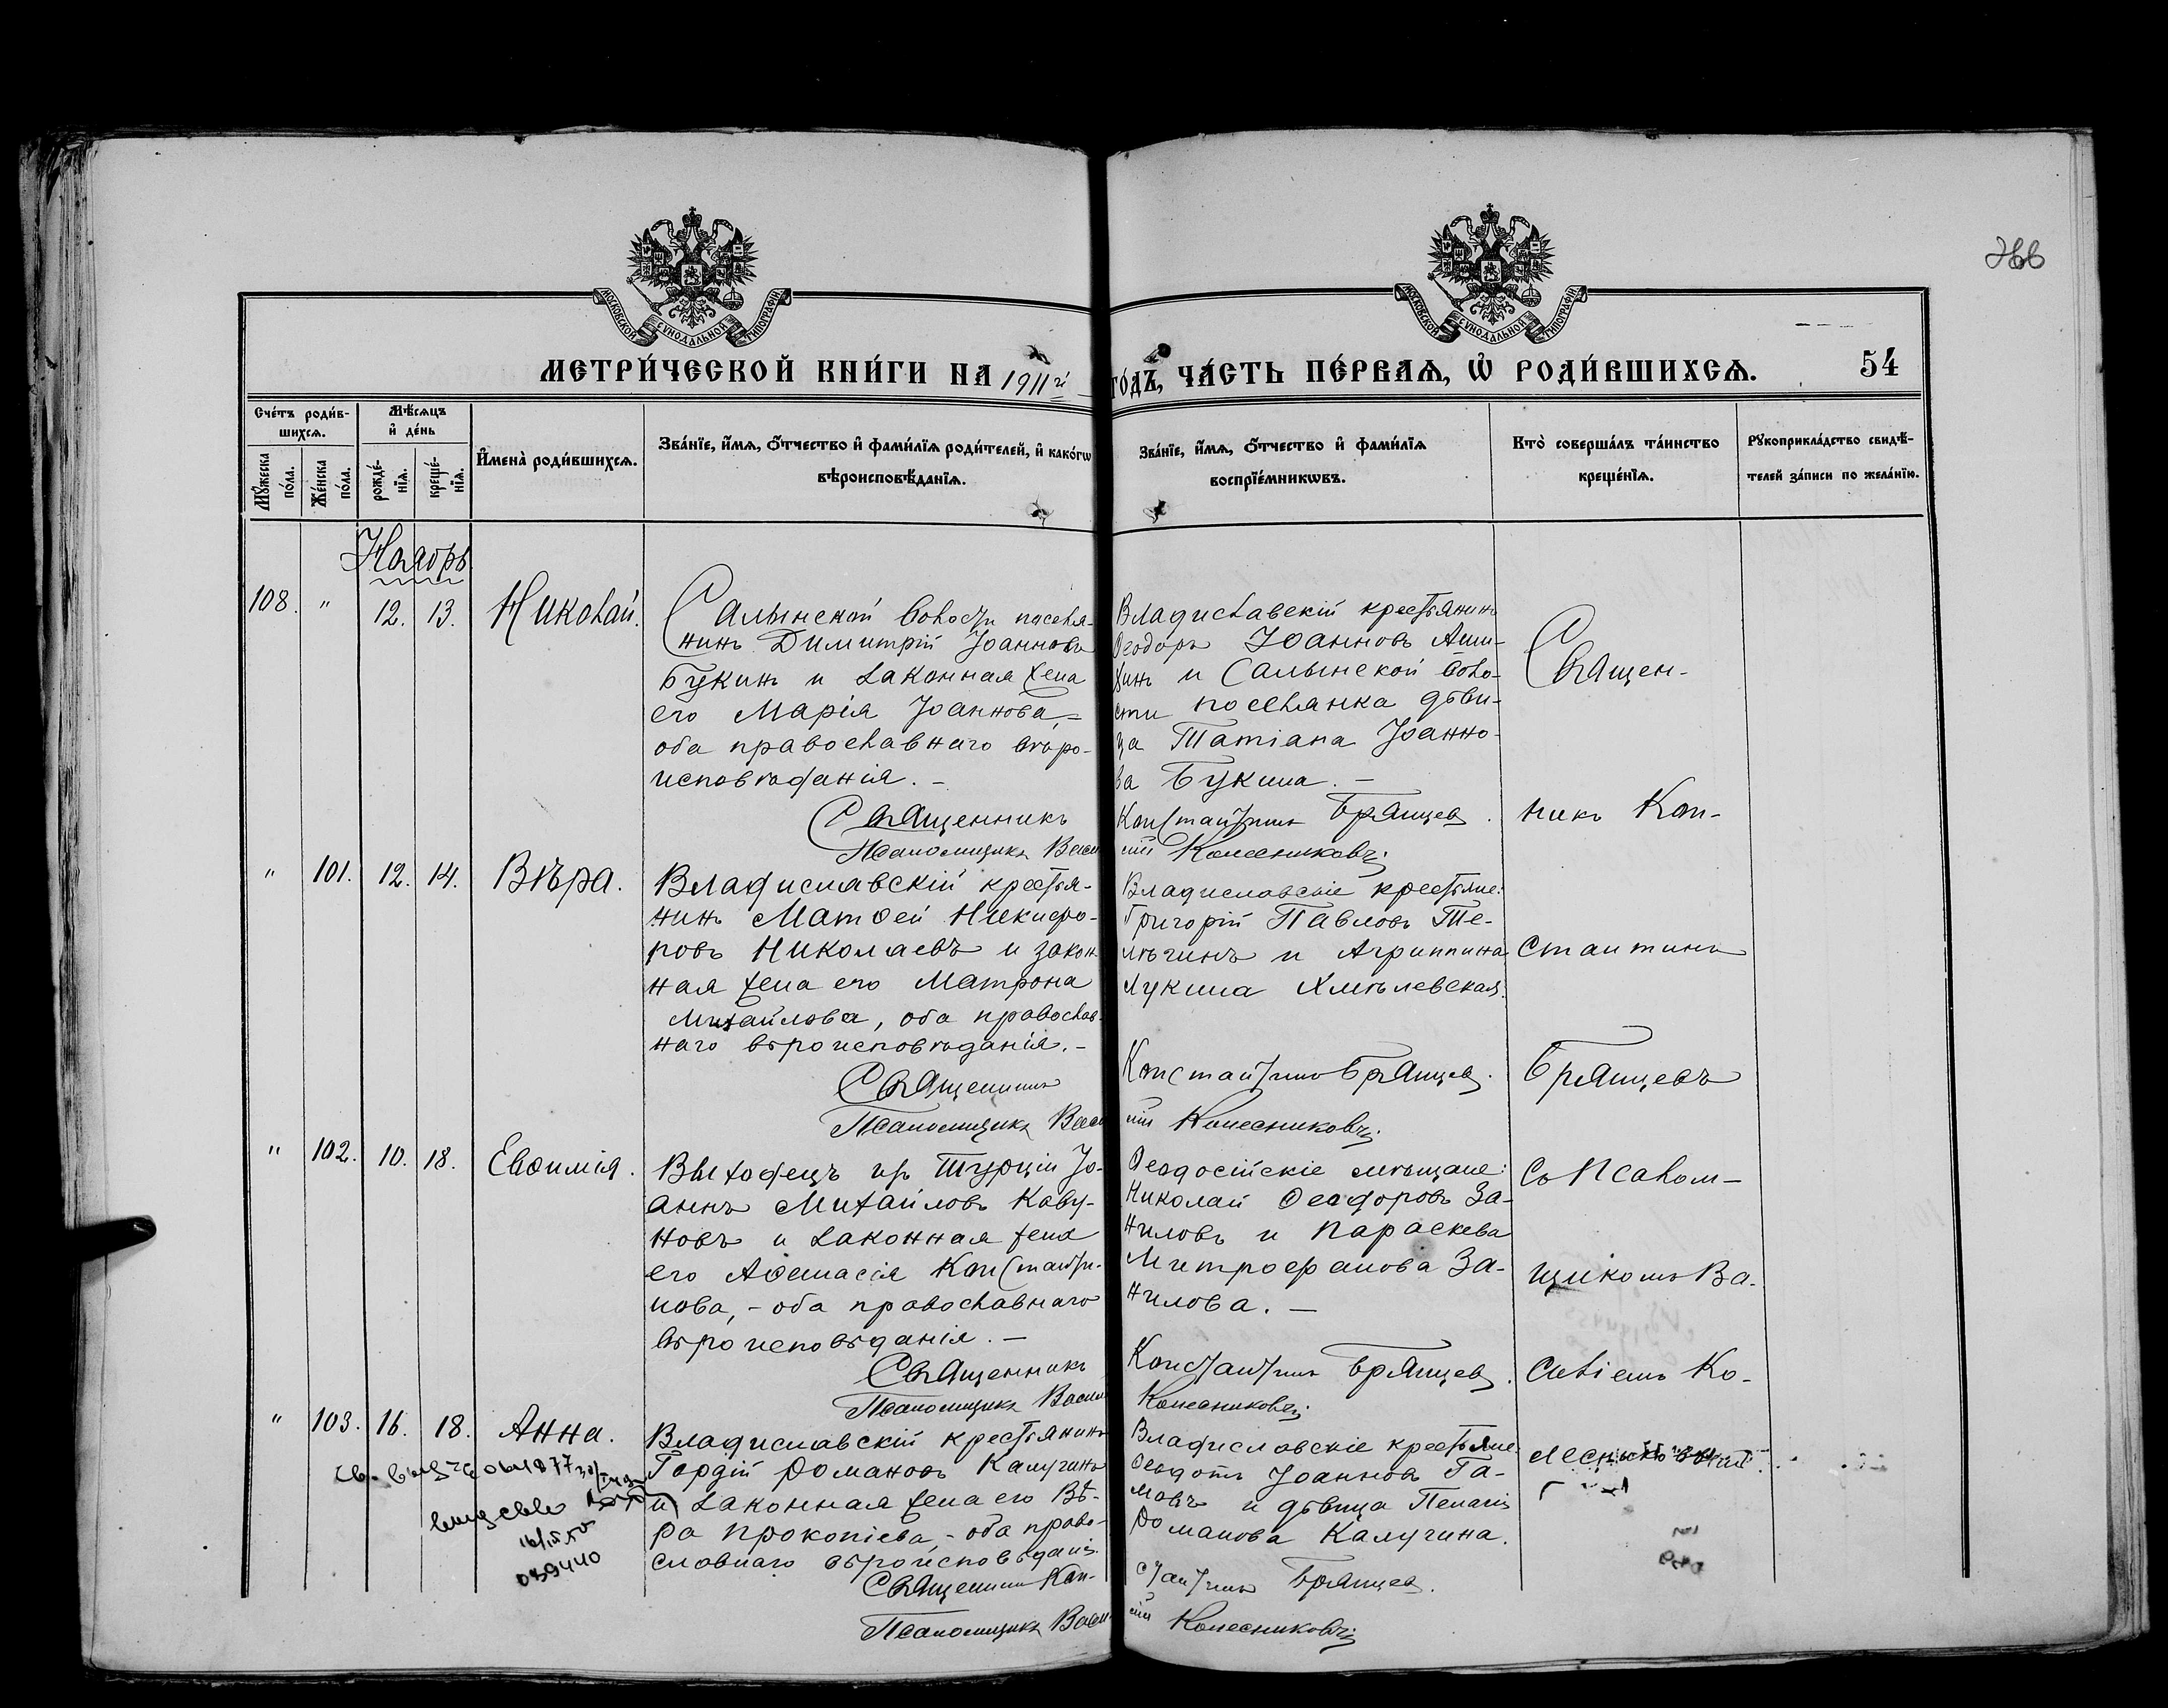 266
МОСКОВСКОЙ СѴНОДАЛЬНОЙ ТИПОГРАФІИ
МОСКОВСКОЙ СѴНОДАЛЬНОЙ ТИПОГРАФІИ
МЕТРИ́ЧЕСКОЙ КНИ́ГИ НА 1911 й
ГО́ДЪ, ЧА́СТЬ ПЕ́РВАѦ, Ѡ҆ РОДИ́ВШИХСѦ. 54
Сче́тъ роди́в-
шихсѧ.
Мꙋ́жеска по́ла.
Же́нска по́ла.
Мѣ́сѧцъ
и҆ де́нь
рожде́-
нїѧ.
креще́-
нїѧ.
И҆мена̀ роди́вшихсѧ.
Зва́нїе, и҆́мѧ, ѻ҆́тчество и҆ фами́лїѧ роди́телей, и҆ како́гѡ
вѣроисповѣ́данїѧ.
Зва́нїе, и҆́мѧ, ѻ҆́тчество и҆ фами́лїѧ
воспрїе́мникѡвъ.
Кто̀ соверша́лъ та́инство
креще́нїѧ.
Рꙋкоприкла́дство свидѣ́-
телей за́писи по жела́нїю.
Ноябрь
108. " 12. 13. Николай.
Салынской волости поселя-
нинъ Димитрій Іоанновъ
Букинъ и законная жена
его Марія Іоаннова, –
оба православнаго вѣро-
исповѣданія. –
Священникъ
Псаломщикъ Васи
Владиславскій крестьянинъ
Ѳеодоръ Іоанновъ Аши-
хинъ и Салынской воло-
сти поселянка дѣви-
ца Татіана Іоанно-
ва Букина. –
Константинъ Брянцев.
лій Колесниковъ
" 101. 12. 14. Вѣра.
Владиславскій крестья-
нинъ Матѳей Никифо-
ровъ Николаевъ и закон
ная жена его Матрона
Михайлова, оба православ-
наго вѣроисповѣданія. –
Священникъ
Псаломщикъ Васи
Владиславскіе крестьяне:
Григорій Павловъ Те-
лѣгинъ и Агриппина
Лукина Хмѣлевская.
Константинъ Брянцев.
лій Колесниковъ
" 102. 10. 18. Евѳимія.
Выходецъ изъ Турціи Іо-
аннъ Михайловъ Каву-
новъ и законная жена
его Аѳанасія Константи-
нова, – оба православнаго
вѣроисповѣданія. –
Священникъ
Псаломщикъ Васил
Ѳеодосійскіе мѣщане:
Николай Ѳеодоровъ За-
ниловъ и Параскева
Митрофанова За-
нилова. –
Константинъ Брянцев.
Колесниковъ
" 103. 16. 18. Анна.
Владиславскій крестьянинъ
Гордій Романовъ Калугинъ
и законная жена его Вѣ-
ра Прокопіева, – оба право-
славнаго вѣроисповѣданія.
Священникъ Кон-
Псаломщикъ Васи
Владиславскіе крестьяне
Ѳеодотъ Іоанновъ Га-
мовъ и дѣвица Пелагія
Романова Калугина.
стантинъ Брянцев.
лій Колесниковъ
Священ-
никъ Кон-
стантинъ
Брянцевъ
Съ Псалом-
щикомъ Ва-
силіемъ Ко-
039440